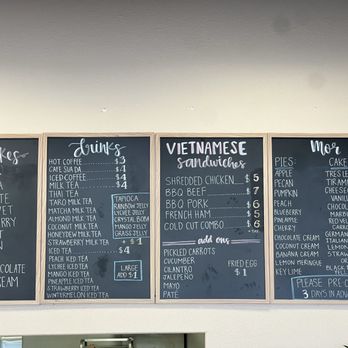 kes
OCOLATE
CREAM
drinks
HOT COFFEE $3
CAFE SUA DA $4
ICED COFFEE $4
MILK TEA $4
THAI TEA
TARO MILK TEA
MATCHA MILK TEA
ALMOND MILK TEA
COCONUT MILK TEA
HONEYDEW MILK TEA
STRAWBERRY MILK TEA
ICED TEA $4
PEACH ICED TEA
LYCHEE ICED TEA
MANGO ICED TEA
PINEAPPLE ICED TEA
STRAWBERRY ICED TEA
WINTERMELON ICED TEA
TAPIOCA
RAINBOW JELLY
LYCHEE JELLY
CRYSTAL BOBA
MANGO JELLY
GRASS JELLY
+ $1
LARGE
ADD $1
VIETNAMESE
sandwiches
SHREDDED CHICKEN $5
BBQ BEEF $7
BBQ PORK $6
FRENCH HAM $5
COLD CUT COMBO $6
add ons
PICKLED CARROTS
CUCUMBER
CILANTRO
JALAPEÑO
MAYO
PATÉ
FRIED EGG
$1
Mor
PIES:
APPLE
PECAN
PUMPKIN
PEACH
BLUEBERRY
PINEAPPLE
CHERRY
CHOCOLATE CREAM
COCONUT CREAM
BANANA CREAM
LEMON MERINGUE
KEY LIME
CAKE
TRES LE
TIRAM
CHEESE
VANIL
CHOCOL
MARB
RED VEL
CHERR
GERMAN
ITALIAN
STRAWBE
OR
BLACK
TE
PLEASE PRE O
3 DAYS IN ADV